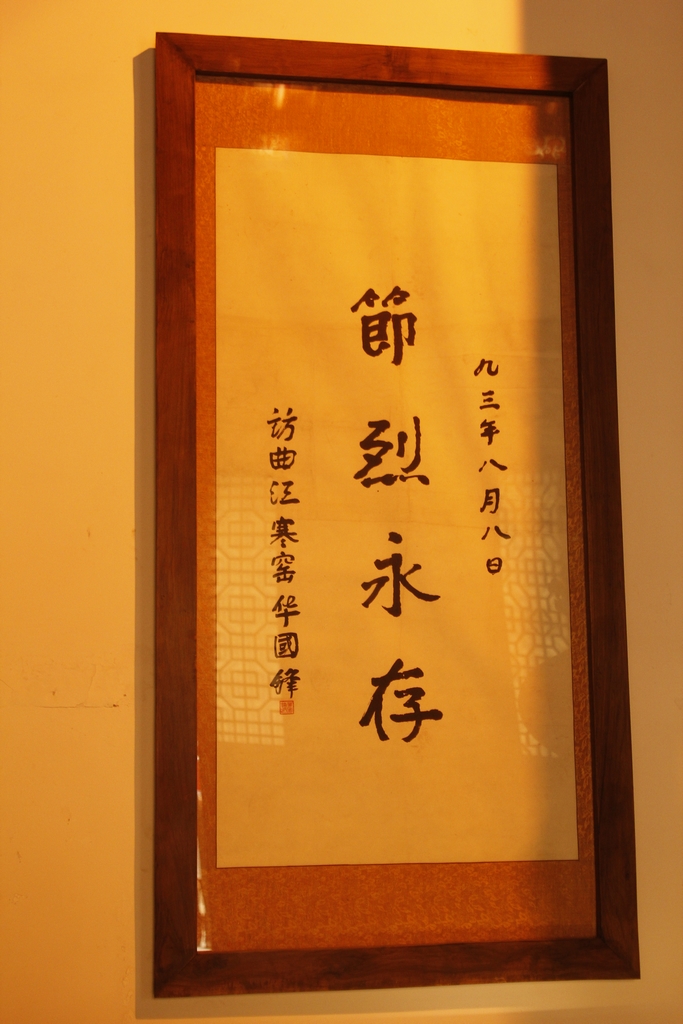 九三年八月八日
節烈永存
訪曲江寒窑华國鋒